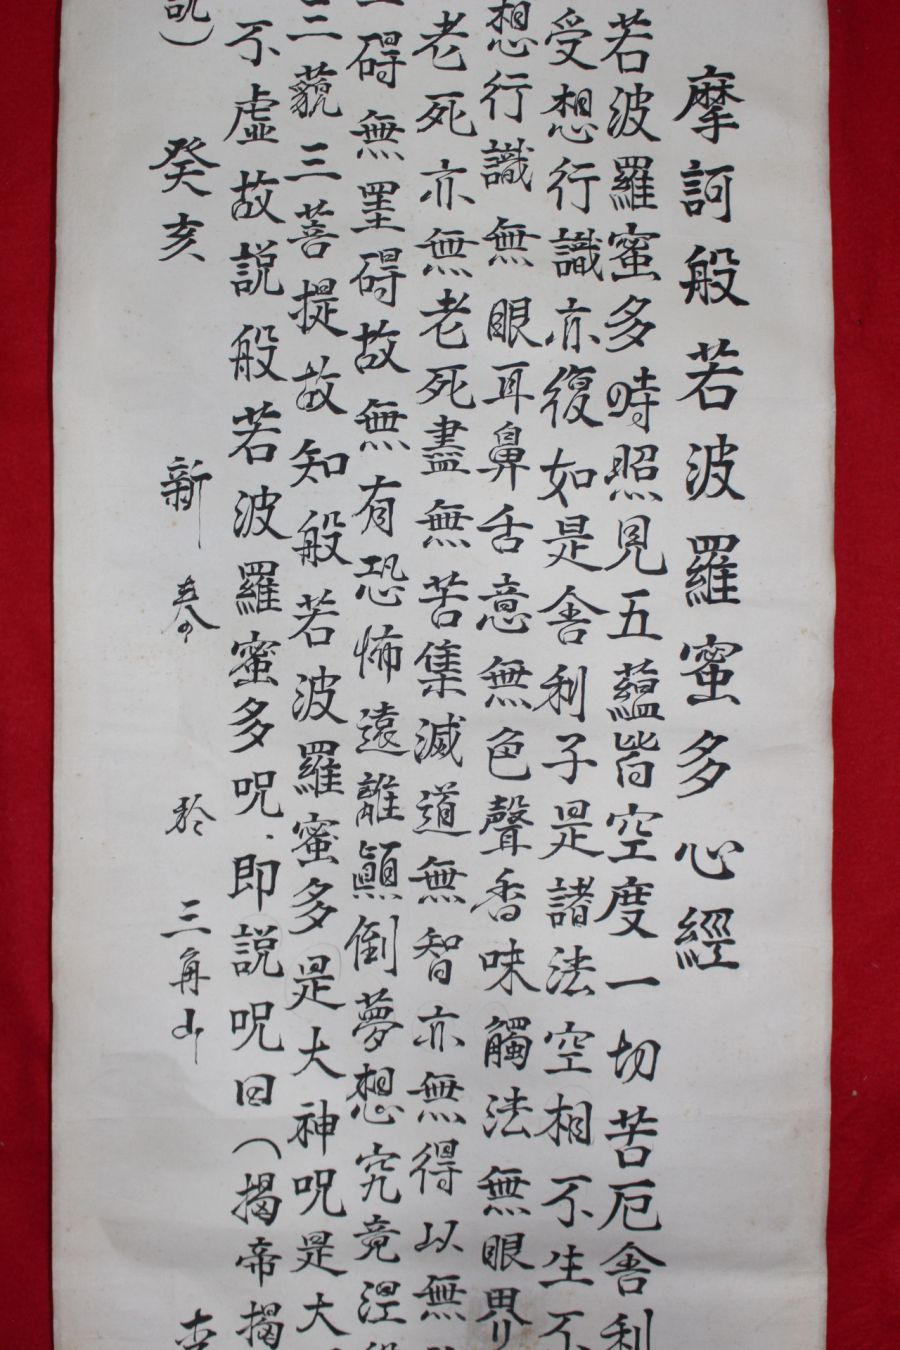 摩訶般若波羅蜜多心經
若波羅蜜多時照見五蘊皆空度一切苦厄舍利
受想行識亦復如是舍利子是諸法空相不生不
想行識無眼耳鼻舌意無色聲香味觸法無眼界
老死亦無老死盡無苦集滅道無智亦無得以無
碍無罣碍故無有恐怖遠離顚倒夢想究竟涅
三藐三菩提故知般若波羅蜜多是大神呪是大
不虛故說般若波羅蜜多呪即說呪曰（揭帝揭
訶）
癸亥 新春 於 三角山